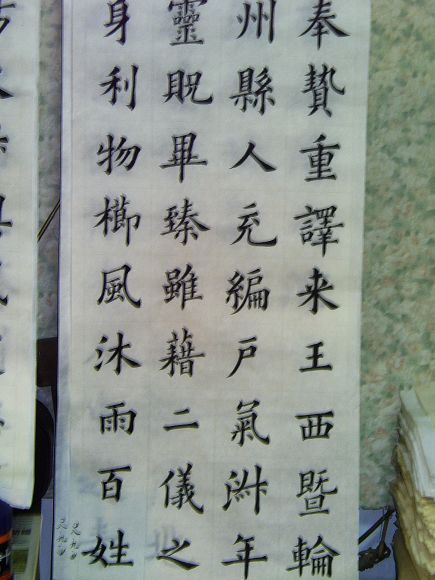 奉贄重譯来王西暨輪
州縣人充編戶氣淑年
靈貺畢臻雖藉二儀之
身利物櫛風沐雨百姓